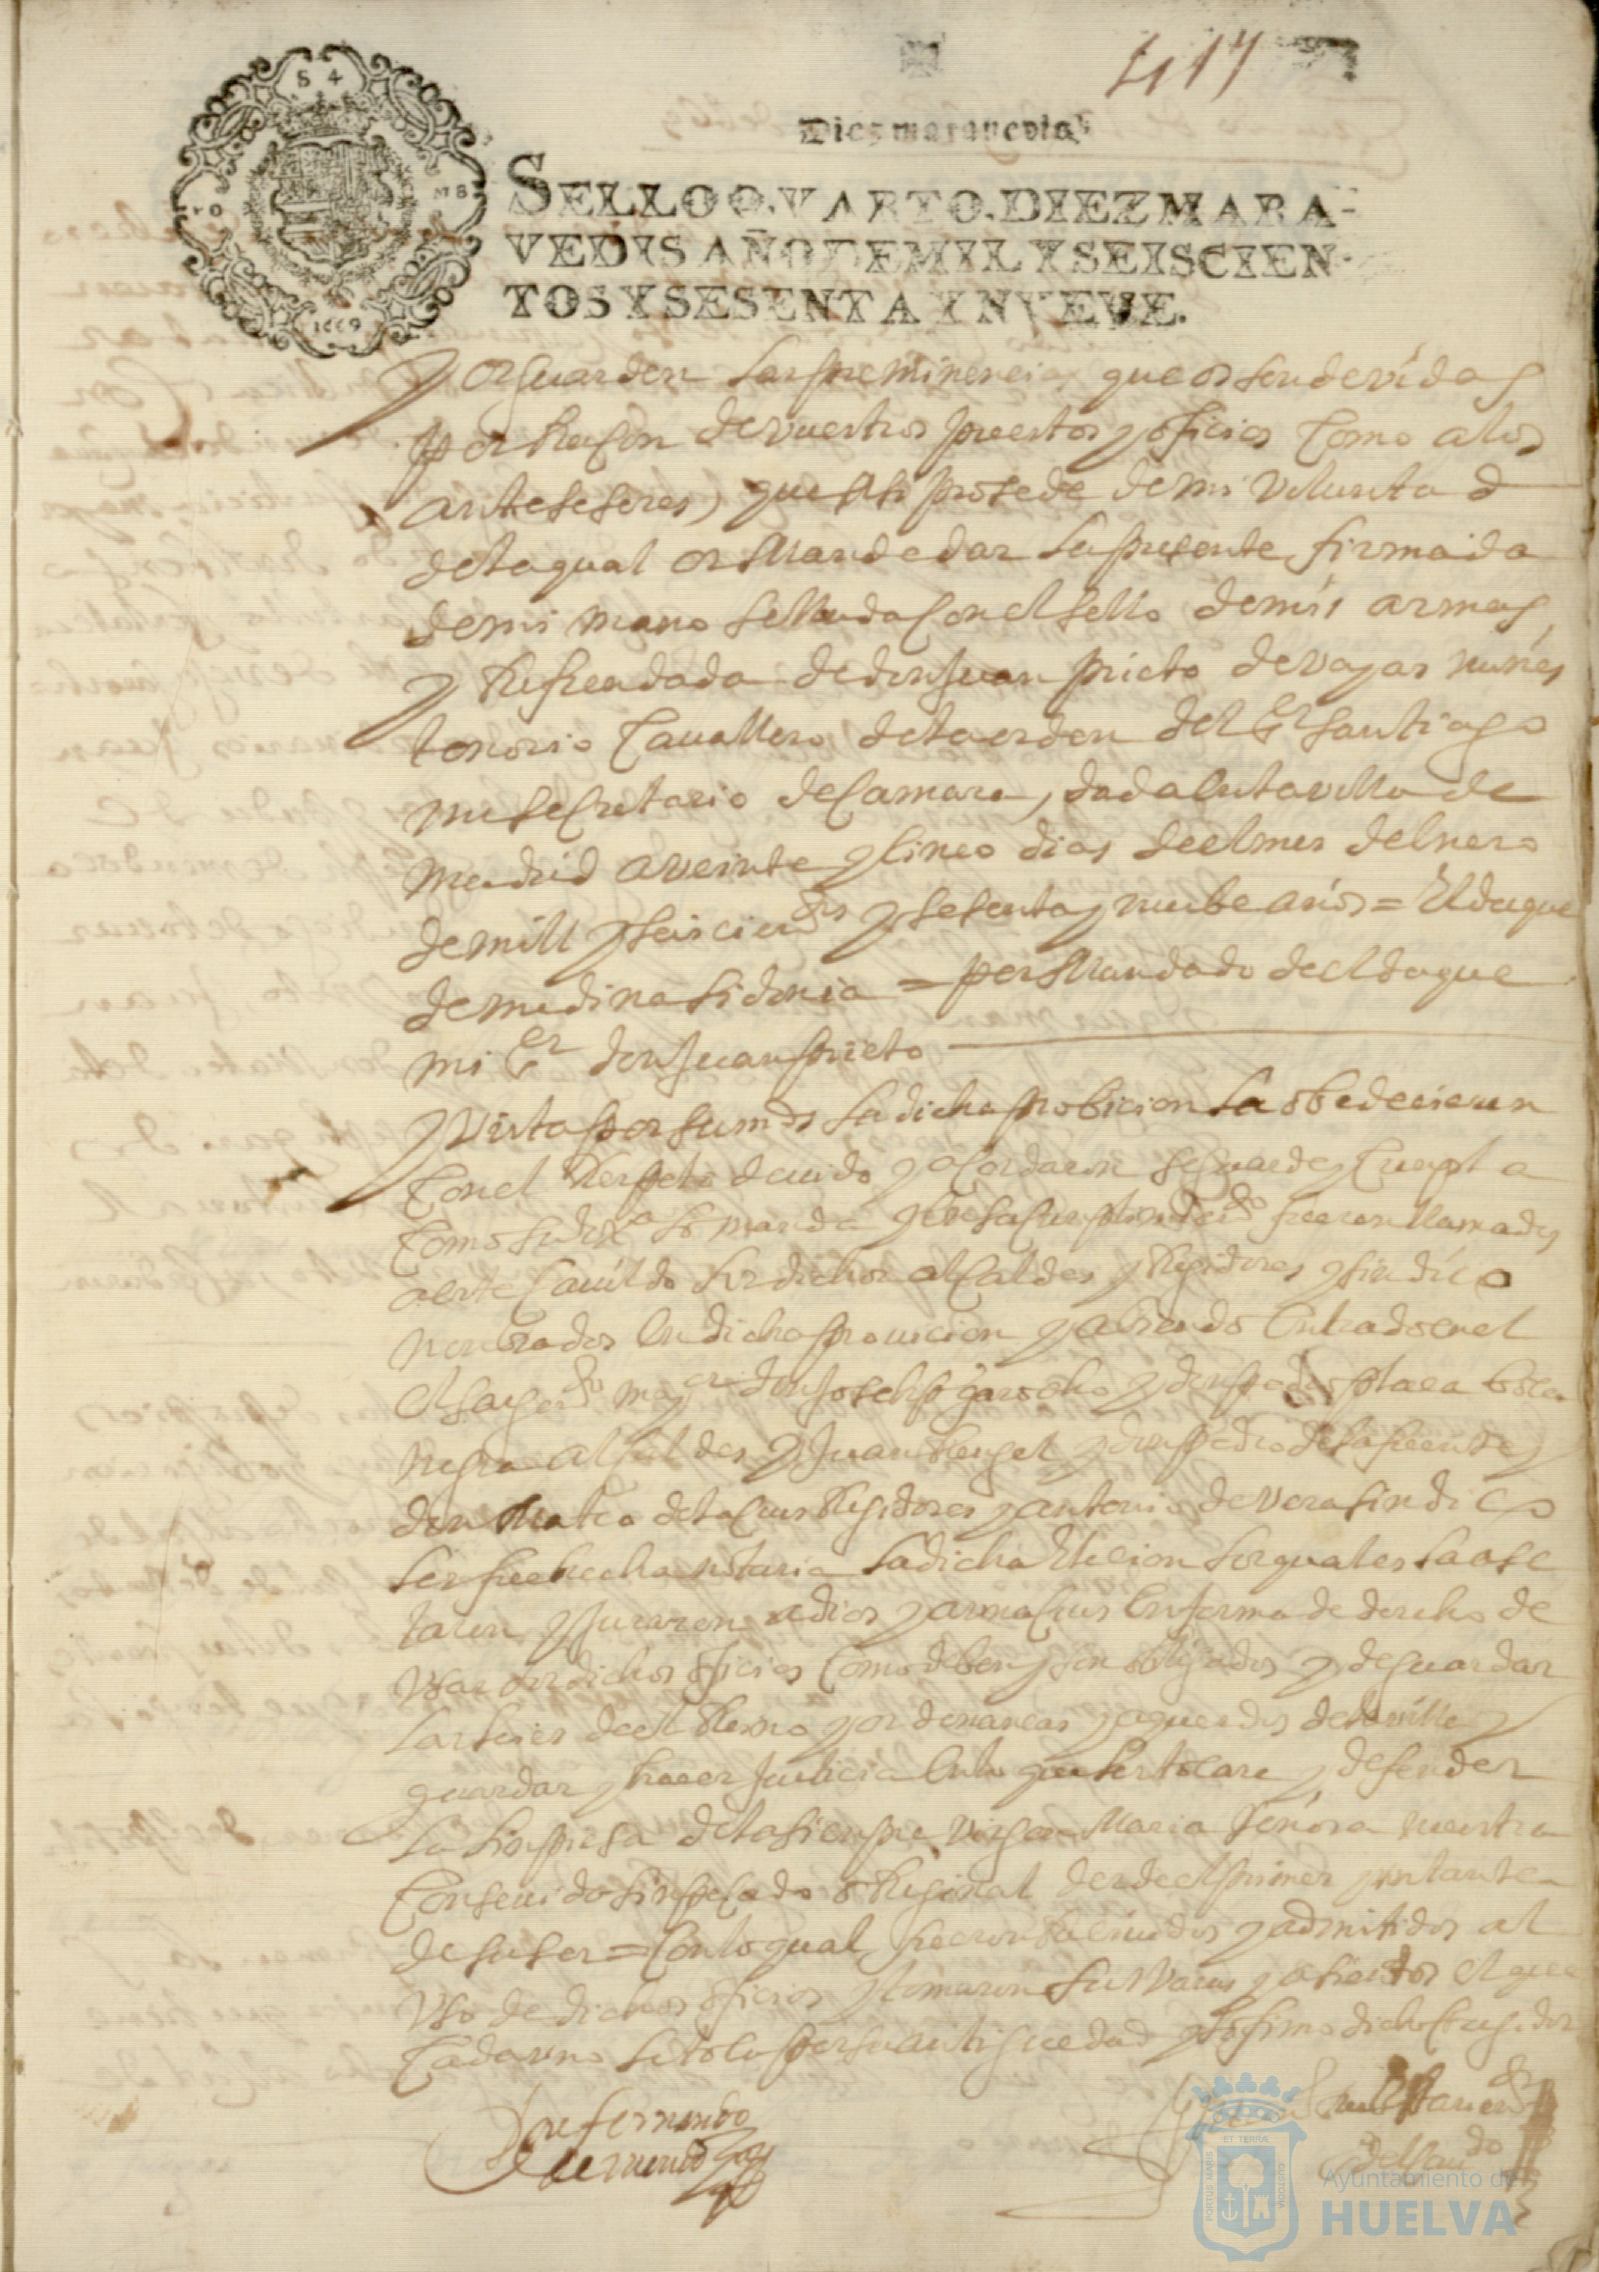 417
S 4
TO
MB
1669
Diez maravedis
SELLO QVARTO, DIEZ MARA-
VEDIS AÑO DE MIL Y SEISCIEN-
TOS Y SESENTA Y NVEVE.
Y os guarden las preminencias que os son devidas
por Raçon de vuestros puestos y oficios como a los
antesesores, que asi prosede de mi voluntad
de la qual os Mande dar la presente firmada
de mi mano sellada con el sello de mis armas
y Refrendada de don Juan prieto de vayas nuñes
tenorio Cavallero de la orden del Sr Santiago
mi secretario de Camara, dada en la villa de
madrid a veinte y cinco dias de el mes de Enero
de mill y seiscientos y sesenta y nuebe años = El duque
de medina sidonia = por Mandado de el duque
mi Sr don Juan prieto
y vista por sus mds la dicha probicion la obedecieron
con el Respeto devido y acordaron se guarde y cumpla
como su Exa lo manda y en su cumplimiento fueron llamados
a este Cavildo los dichos alcaldes y Regidores y sindico
nombrados en dicha provicion y abiendo entrado en el
el sargto mayor don Joseph garrocho y don pedro plaça boca
negra alcaldes y Juan Rengel y don pedro de la fuente y
don Mateo de la Cruz Regidores y antonio de Vera sindico
les fue hecha notaria la dicha Elecion los quales la ase
taron y juraron a dios y a una Cruz en forma de derecho de
usar los dichos oficios como deben y son obligados y de guardar
las leies de el Reino y ordenanças y aquerdos de la villa y
guardar y hacer justicia en lo que les tocare y defender
la limpiesa de la siempre Virgen Maria señora nuestra
Consevida sin pecado original desde el primer ynstante
de su ser = Con lo qual fueron Recividos y admitidos al
uso de dichos oficios y tomaron sus Varas y asientos el que
cada uno le toco por su antiguedad y lo firmo dicho Corregidor
ET TERRÆ
PORTUS MARIS
CUSTODIA
Ayuntamiento de
HUELVA